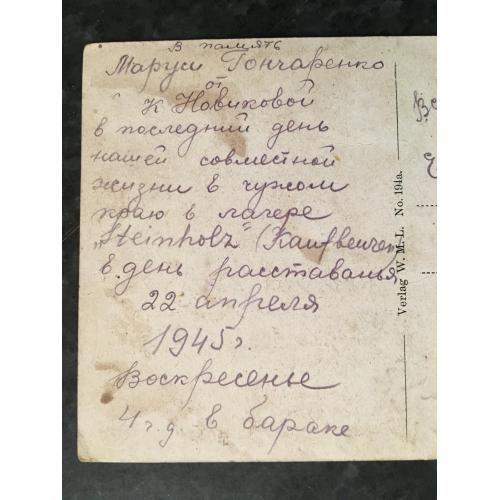 В память
Маруси Гончаренко
от
К Новиковой
в последний день
нашей совместной
жизни в чужом
краю в лагере
"Steinholz" (Kaufbeuren
в день расставанья
22 апреля
1945г.
Воскресенье
4 ч. д. в бараке
Verlag W. M.-L. No. 194a.